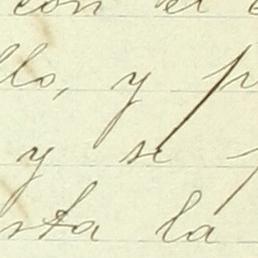 con el
llo, y p
y se
sta la